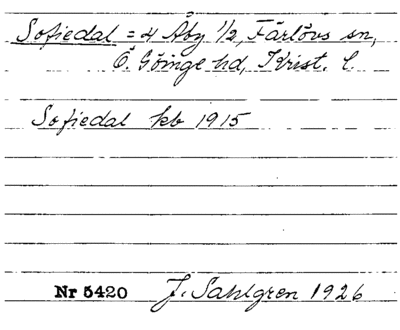 Sofiedal = 4 Åby 1/2, Färlövs sn,
Ö. Göinge hd, Krist. l.
Sofiedal kb 1915
Nr 5420 J. Sahlgren 1926